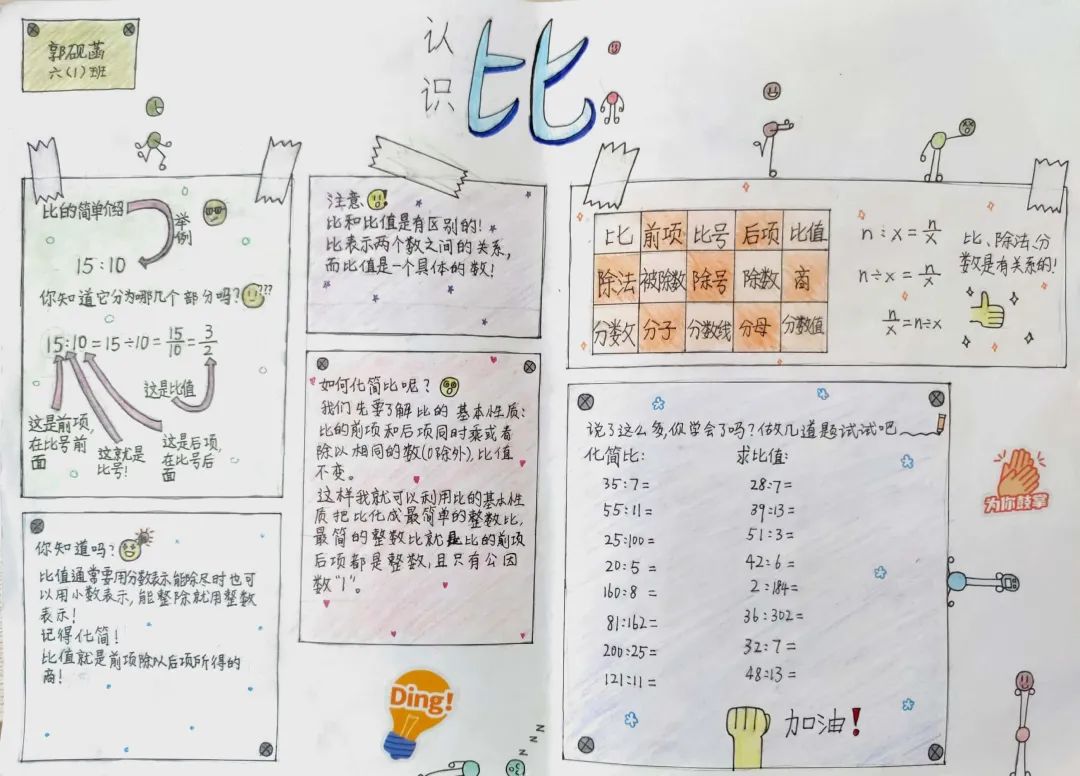 郭砚菡
六(1)班
认识
比
比的简单介绍
举例
15:10
你知道它分为哪几个部分吗????
15:10=15÷10=15/10=3/2
这是比值
这是前项,
在比号前
面
这就是
比号!
这是后项,
在比号后
面
你知道吗?
比值通常要用分数表示,能除尽时也可
以用小数表示,能整除就用整数
表示!
记得化简!
比值就是前项除以后项所得的
商!
注意
比和比值是有区别的!
比表示两个数之间的关系,
而比值是一个具体的数!
如何化简比呢?
我们先要了解比的基本性质:
比的前项和后项同时乘或者
除以相同的数(0除外),比值
不变。
这样我就可以利用比的基本性
质把比化成最简单的整数比,
最简的整数比就是比的前项
后项都是整数,且只有公因
数“1”。
Ding!
z z z
比 前项 比号 后项 比值
除法 被除数 除号 除数 商
分数 分子 分数线 分母 分数值
n:x=n/x
n÷x=n/x
n/x=n÷x
比、除法、分
数是有关系的!
说了这么多,你学会了吗?做几道题试试吧
化简比:
35:7=
55:11=
25:100=
20:5=
160:8=
81:162=
200:25=
121:11=
求比值:
28:7=
39:13=
51:3=
42:6=
2:184=
36:302=
32:7=
48:13=
加油!
为你鼓掌